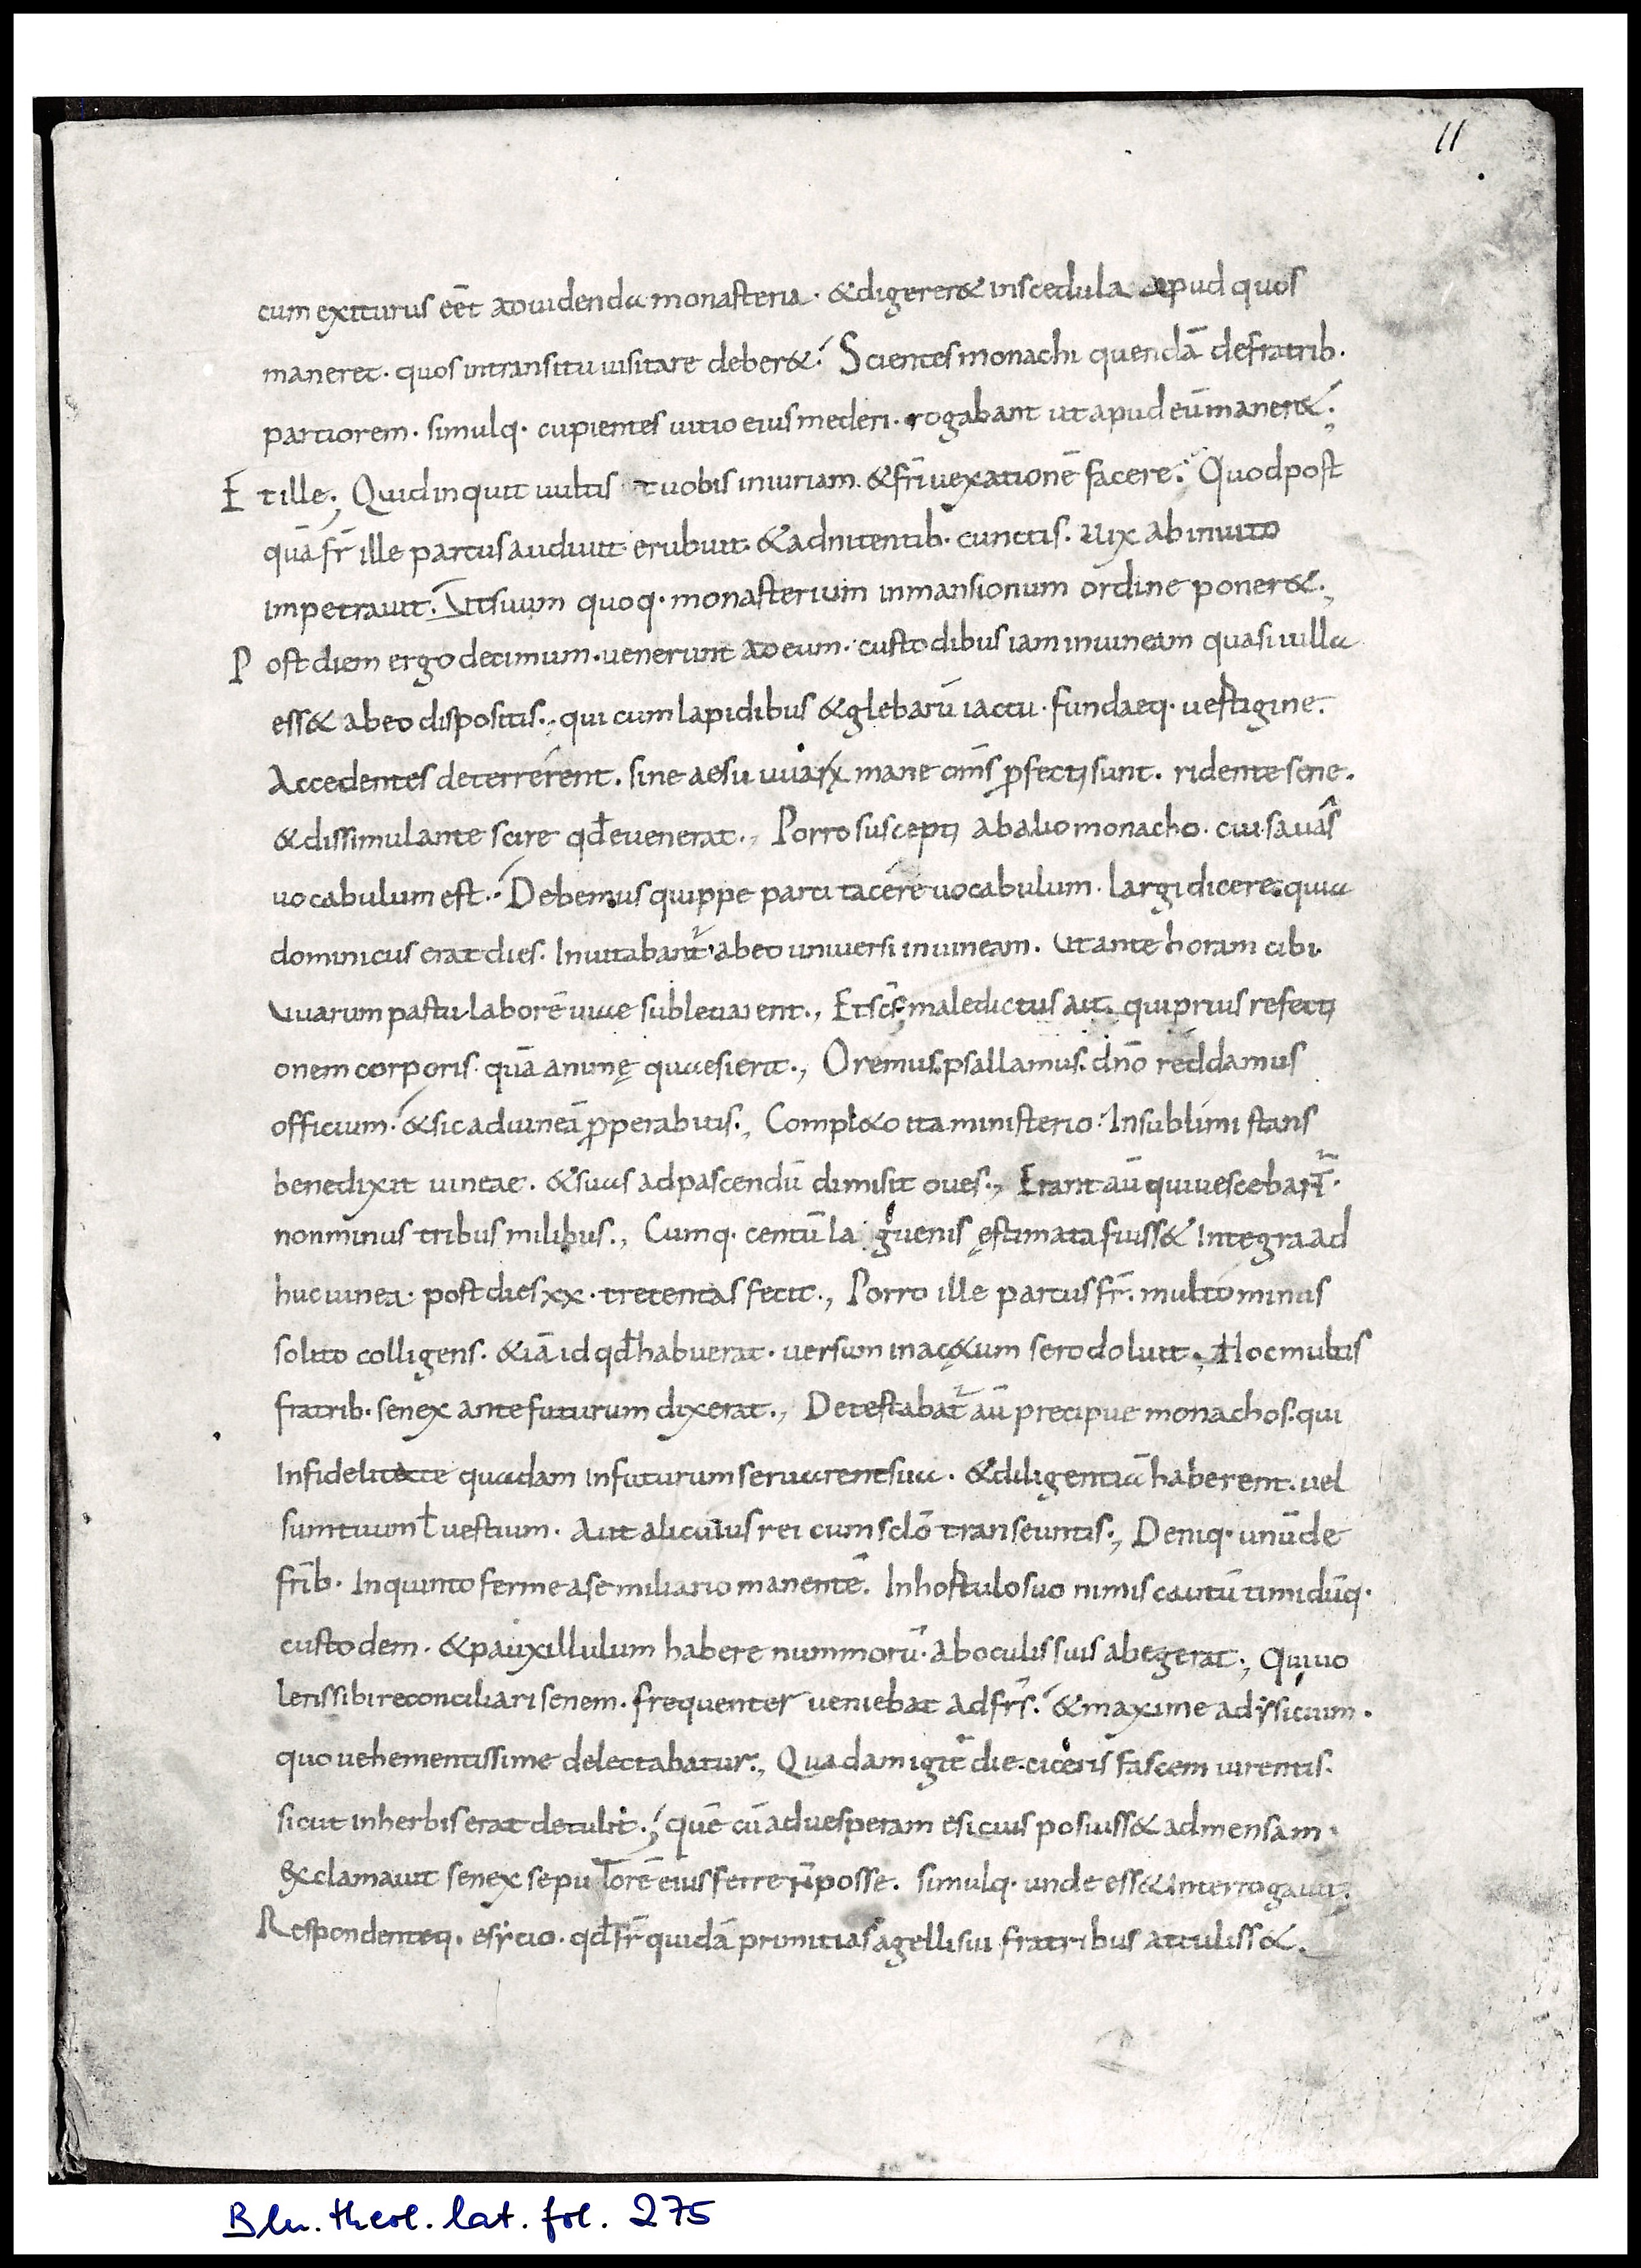 11
cum exiturus eēt ad uidenda monasteria · & digerer& in scedula apud quos
maneret · quos in transitu uisitare deber& · Scientes monachi quendā de fratrib ·
partiorem · simulq · cupientes uitio eius mederi · rogabant ut apud eū maner& ·
Et ille ; Quid inquit uultis et uobis iniuriam · & fr̄i uexationē facere · Quod post
quā fr̄ ille partus audiuit · erubuit · & adnitentib · cunctis · uix ab inuito
impetrauit · Ut suum quoq · monasterium in mansionum ordine poner& ·,
Post diem ergo decimum · uenerunt ad eum · custodibus iam in uineam quasi uilla
ess& ab eo dispositis ·, qui cum lapidibus & glebarū iactu · fundaeq · uestigine ·
Accedentes deterrerent · sine aesu uuarꝝ mane om̄s ꝓfecti sunt · ridente sene ·
& dissimulante scire qd̄ euenerat ·, Porro suscepti ab alio monacho · cui sauas
uocabulum est · Debemus quippe parti tacere uocabulum · largi dicere · quia
dominicus erat dies · Inuitabant̄ ab eo uniuersi in uineam · Ut ante horam cibi
Uuarum pastu laborē uiae subleuarent ·, Et sc̄s maledictus ait · qui prius refecti
onem corporis · quā animę quaesierit ·, Oremus · psallamus · dn̄o reddamus
officium · & sic ad uineā ꝓperabitis ·, Compl&o ita ministerio · In sublimi stans
benedixit uineae · & suas ad pascendū dimisit oues ·, Erant aū qui uescebant̄ ·
non minus tribus milibus ·, Cumq · centū laguenis ęstimata fuiss& Integra ad
huc uinea · post dies xx · trecentas fecit ·, Porro ille partus fr̄ · multo minus
solito colligens · & iā id qd̄ habuerat · uersum in ac&um sero doluit ·, Hoc multis
fratrib · senex ante futurum dixerat ·, Detestabat̄ aū precipue monachos · qui
Infidelitate quadam in futurum seruarent sua · & diligentiā haberent · uel
sumtuum ł uestium · Aut alicuius rei cum sclō transeuntis ·, Deniq · unū de
fr̄ib · In quinto ferme a se miliario manentē · In hostulo suo nimis cautū timidūq ·
custodem · & pauxillulum habere nummorū · ab oculis suis abegerat ·, Qui uo
lens sibi reconciliari senem · frequenter ueniebat ad fr̄s · & maxime ad ysicium ·
quo uehementissime delectabatur ·, Quadam igit̄ die · ciceris fascem uirentis ·
sicut in herbis erat detulit ·, quē cū ad uesperam esicius posuiss& ad mensam ·
Exclamauit senex se putorē eius ferre n̄ posse · simulq · unde ess& interrogauit ·
Respondenteq · esycio · qd̄ fr̄ quidā primitias agelli sui fratribus attuliss& ·
Bln. theol. lat. fol. 275